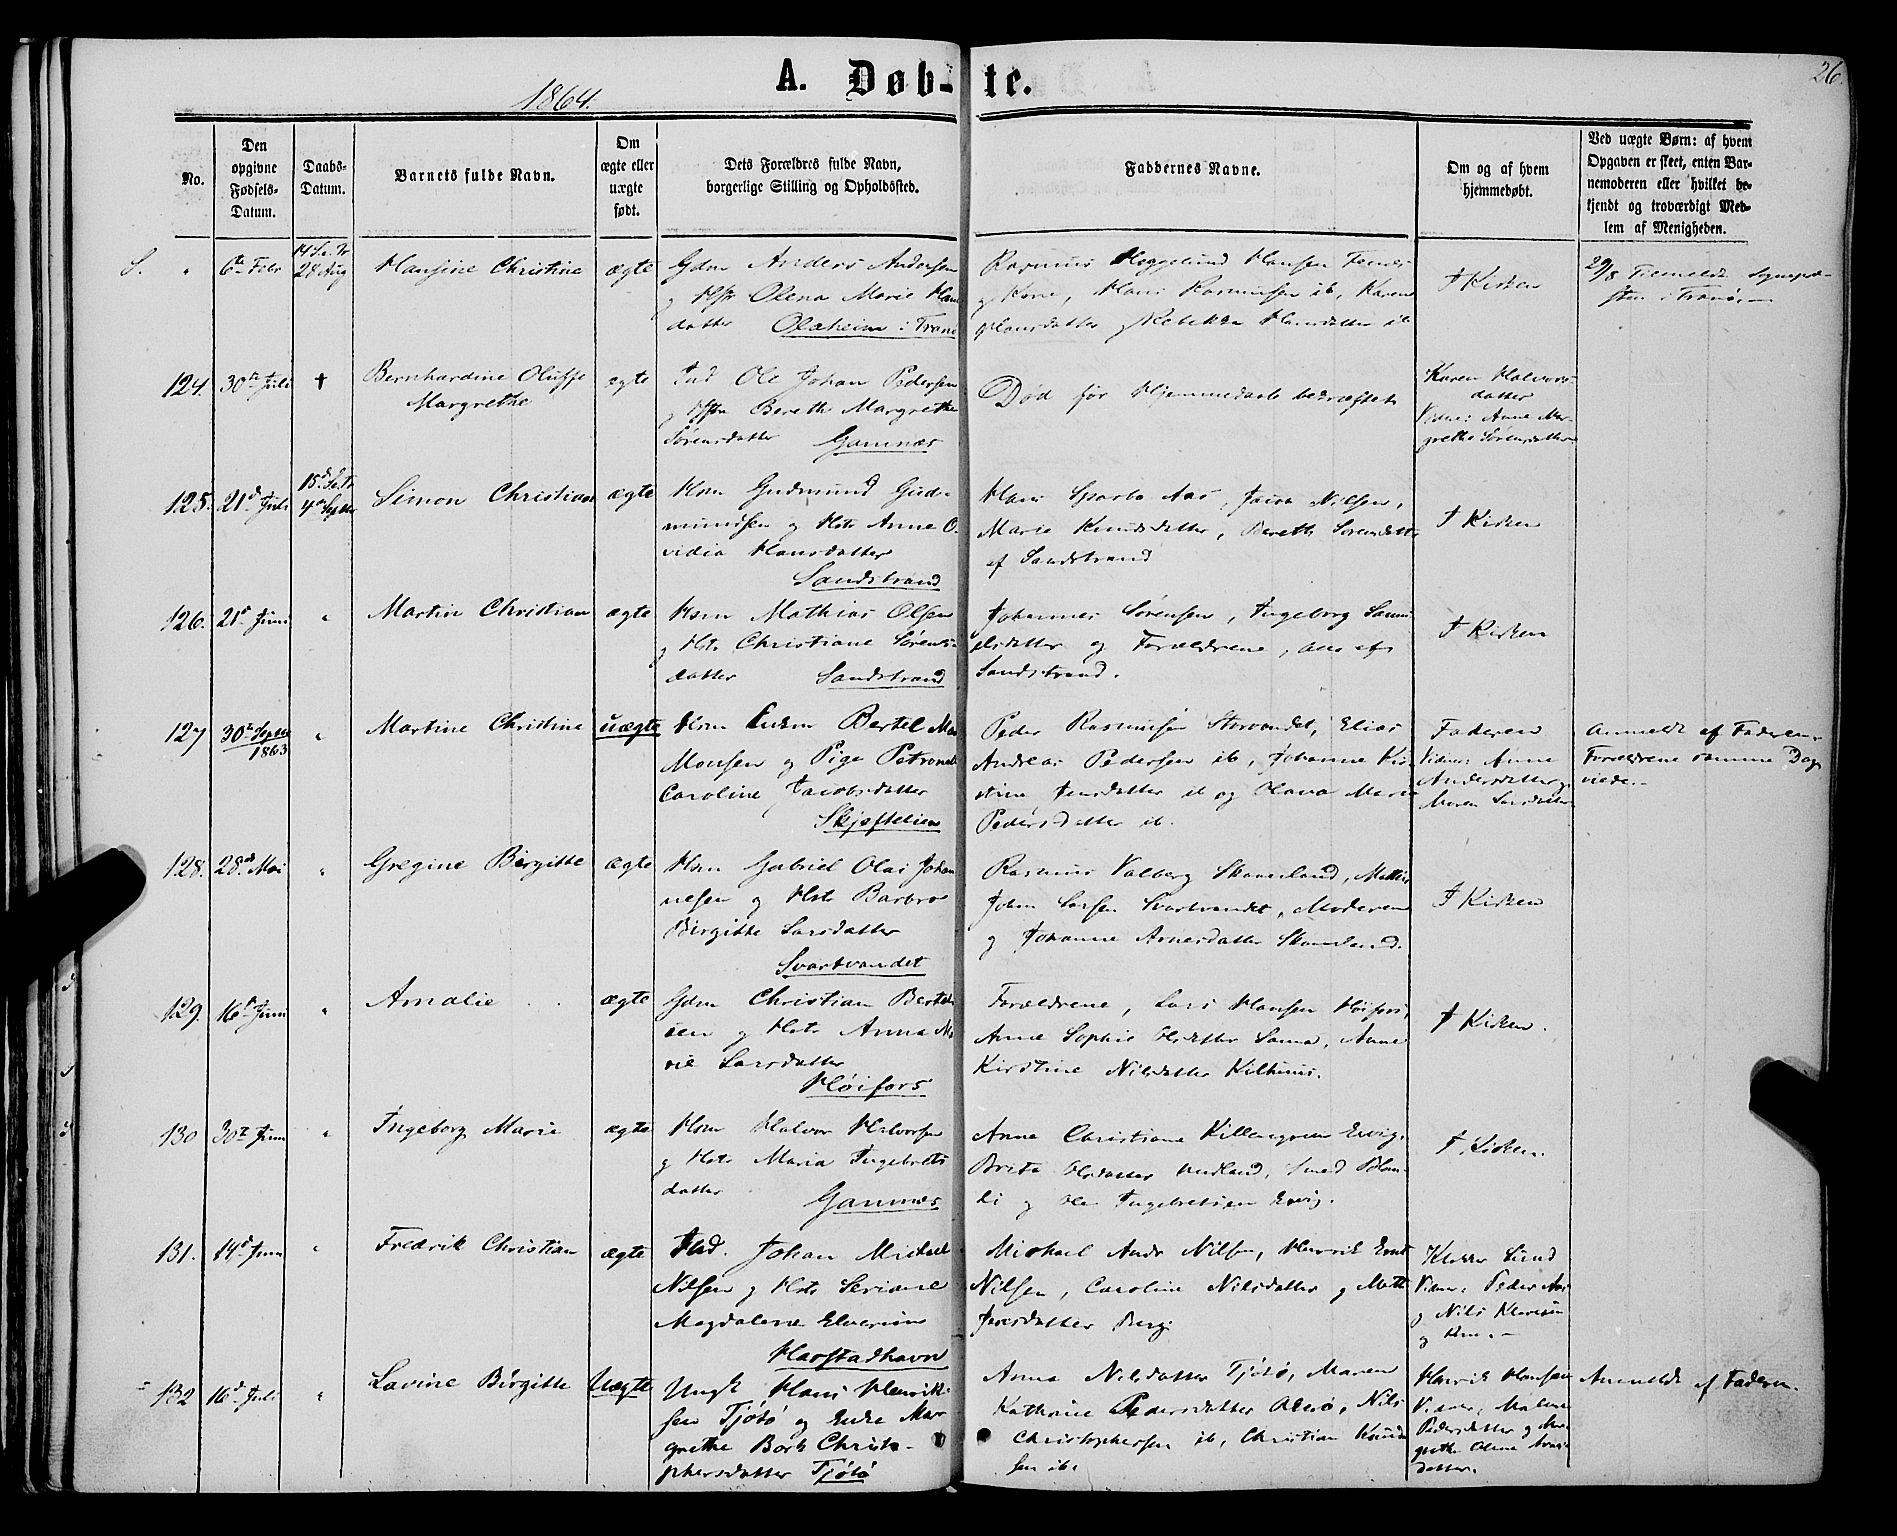 26
1864.
A. Døb-te.
No.
Den opgivne Fødsels-Datum.
Daabs-Datum.
Barnets fulde Navn.
Om ægte eller uægte født.
Dets Forældres fulde Navn,
borgerlige Stilling og Opholdssted.
Faddernes Navne.
Om og af hvem
hjemmedøbt.
Ved uægte Børn: af hvem
Opgaven er skeet, enten Bar-
nemoderen eller hvilket be-
kjendt og troværdigt Med-
lem af Menigheden.
S. " 6te Febr 14 S.e.Tr 28 Aug Hansine Christine ægte Gdm Anders Andersen
og Hstr Olena Marie Hans
datter Olaheim i Tranø
Rasmus Hansen
og Kone, Hans Rasmussen ib, Karen
Hansdatter og Rebekka Hansdatter ib
I Kirken
29/8 Tilmeldt Sognepræ-
sten i Tranø.
124. 30te Juli † Bernhardine Oluffe
Margrethe
ægte Ind Ole Johan Pedersen
og Hstr Bereth Margrethe
Sørensdatter Gannæs
Død før Hjemmedaab bedræftet
Karen Halvors-
datter
Vidner: Anne Mar-
grethe Sørensdatter
125. 21d Juli 15d S.e.Tr 4de Septbr Simon Christian ægte Hsm Gudmund Gud-
mundsen og Hstr Anne O-
vidia Hansdatter
Sandstrand
Hans Aas, Nilsen,
Marie Knudsdatter, Bereth Sørensdatter
af Sandstrand
I Kirken
126. 21d Juni " Martin Christian ægte Hsm Mathias Olsen
og Hstr Christiane Sørens-
datter Sandstrand
Johannes Sørensen, Ingeborg Samu-
elsdatter og Forældrene, alle af
Sandstrand.
I Kirken
127 30te Septbr
1863 " Martine Christine uægte Hsm Enkm Bertel
Monsen og Pige Petronelle
Caroline Jacobsdatter
Skjæftelien
Peder Rasmussen Storvandet, Elias
Andreas Pedersen ib, Johanne Kir-
stine Jensdatter ib og Olava Marie
Pedersdatter ib.
Faderen
Vidner: Anne
Andersdatter og
Maren Larsdatter
Anmeldt af Faderen.
Forældrene samme Dag
viede.
128. 28de Mai " Gregine Birgitte ægte Hsm Gabriel Olai Johan
nesen og Hstr Barbro
Birgitte Larsdatter
Svartvandet
Rasmus Valberg Skaanland,
Johan Larsen Svartvandet, Moderen
og Johanne Arnesdatter Skaanland.
I Kirken
129. 16d Juni " Amalie ægte Gdm Christian Bertel
sen og Hstr Anna Ma
rie Larsdatter
Høifors
Forældrene, Lars Hansen Høifors,
Anne Sophie Olsdatter Sama, Anne
Kirstine Nilsdatter Kilhuus.
I Kirken.
130 30te Juni " Ingeborg Marie ægte Hsm Halvor Halvorsen
og Hstr Maria Ingebrets
datter Gannæs
Anne Christiane Ervig,
Brita Olsdatter
og Ole Ingebretsen Ervig.
I Kirken.
131. 14d Juni " Fredrik Christian ægte Ind. Johan Michael
Nilsen og Hstr Seriane
Magdalene Elverum
Harstadhavn
Michael Andr Nilsen, Henrik Ernst
Nilsen, Caroline Nilsdatter og
Jensdatter Berg.
Klokker Lund
Vidner: Peder Aas
og Nils
og Kone.
132 16d Juli " Lavine Birgitte Uægte Ungk Hans Henrik-
sen Tjøtø og Enke Mar
grethe Bork Christo-
phersdatter Tjøtø
Anna Nilsdatter Tjøtø, Maren
Kathrine Pedersdatter, Nils
Christophersen ib, Christian Knud-
sen ib.
Henrik Hansen
Vidner: Malene
Pedersdatter og Mar
grethe Oline
datter.
Anmeldt af Faderen.